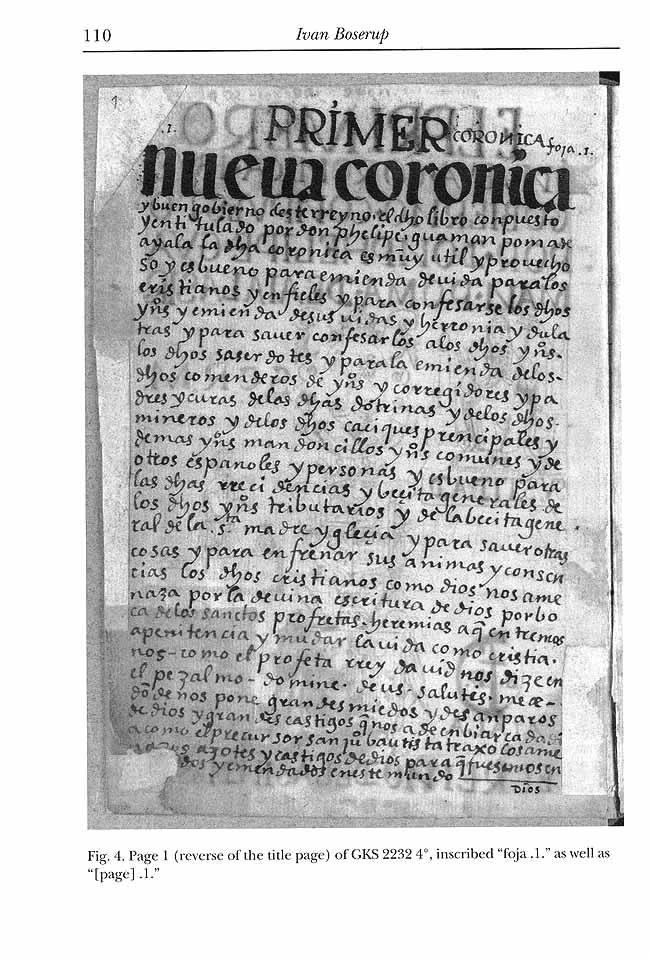 110
Ivan Boserup
1
.1.
PRIMER CORONICA foja .1.
nueua coronica
y buen gobierno deste rreyno. el dho libro conpuesto
y entitulado por don phelipe guaman poma de
ayala la dha coronica es muy util y prouecho
so y es bueno para emienda de uida para los
cristianos y enfieles y para confesarse los dhos
yns y emienda de sus uidas y herronia ydula
tras y para sauer confesarlos a los dhos yns.
los dhos saserdotes y para la emienda de los
dhos comenderos de yns y corregidores y pa
dres y curas de las dhas dotrinas y de los dhos.
mineros y de los dhos caciques prencipales y
demas yns mandoncillos yns comunes y de
otros espanoles y personas y es bueno para
las dhas rrecidencias y becita generales de
los dhos yns tributarios y de la becita gene
ral de la. sta madre yglecia y para sauer otras
cosas y para enfrenar sus animas y consen
cias los dhos cristianos como dios nos ame
naza por la deuina escritura de dios por bo
ca de los sanctos profretas. heremias a q̃ entremos
a penitencia y mudar la uida como cristia.
nos - como el profeta rrey dauid nos dize en
el pezalmo - domine. deus. salutes. meae -
donos pone grandes miedos y desanparos
de dios y grandes castigos q̃ nos a de enbiar cada di
a como el precursor san juo bautista traxo los ame
azotes y castigos de dios para q̃ fuesemos en
dos y emendados en este mundo
DIOS
Fig. 4. Page 1 (reverse of the title page) of GKS 2232 4°, inscribed “foja .1.” as well as
“[page] .1.”